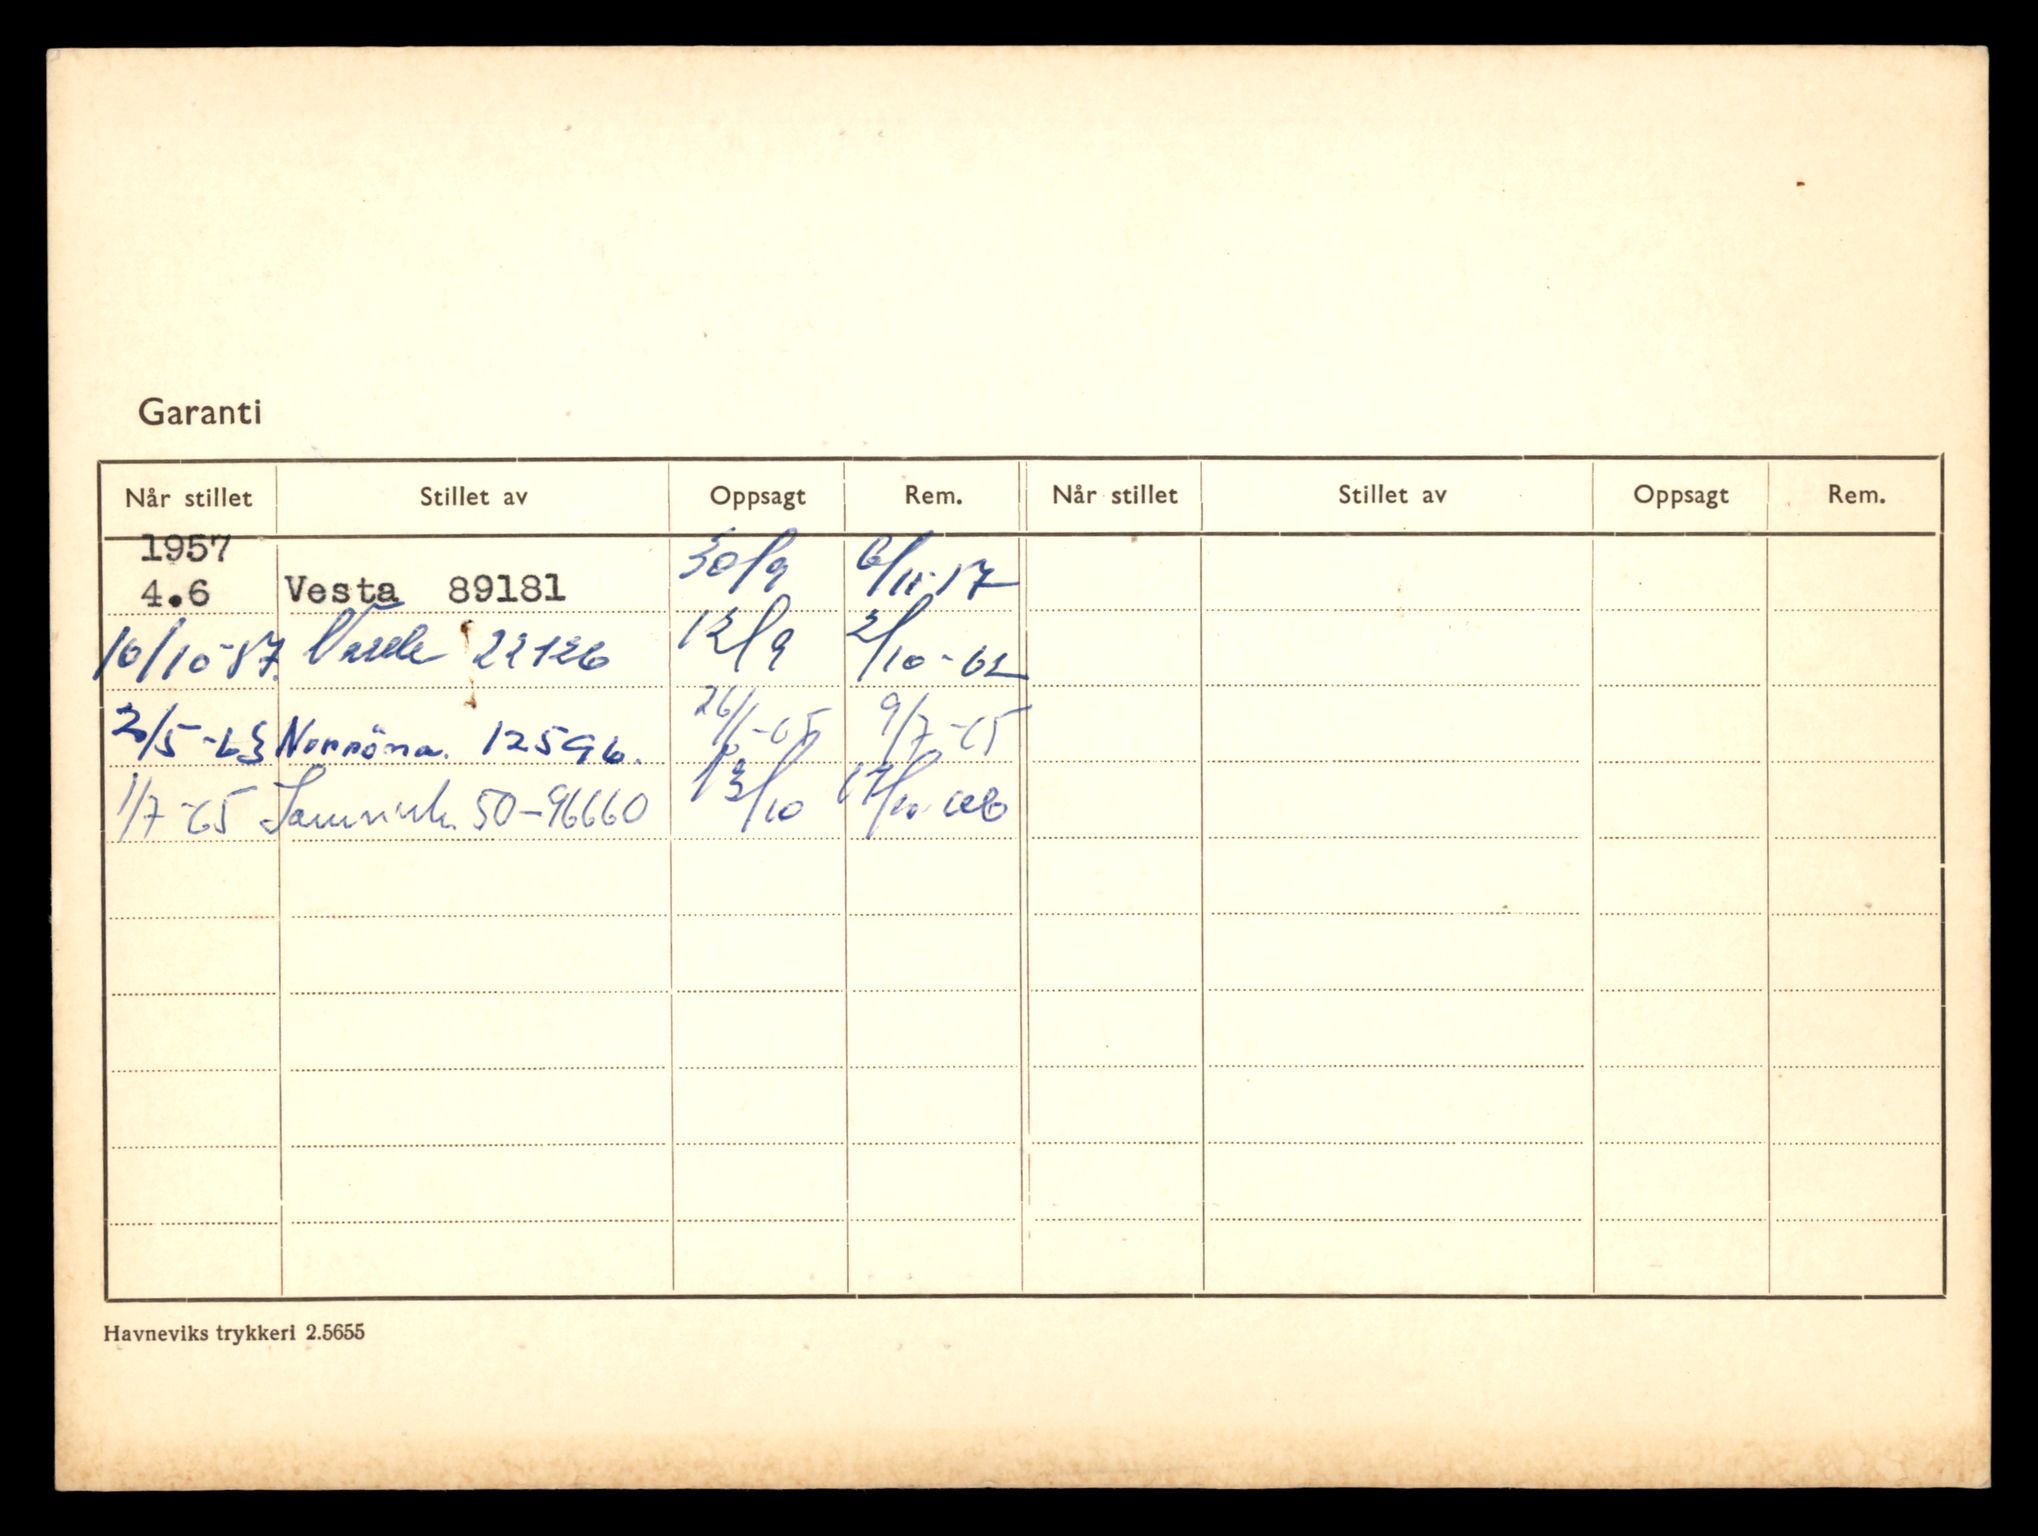 Garanti
Når stillet Stillet av Oppsagt Rem. Når stillet Stillet av Oppsagt Rem.
1957
4.6 Vesta 89181 30/9 6/11-57
10/10-57. Varde 22126 12/9 2/10-62
2/5-63 Norröna. 12596. 26/6-65 9/7-65
1/7-65 50-96660 13/10 17/10-66
Havneviks trykkeri 2.5655